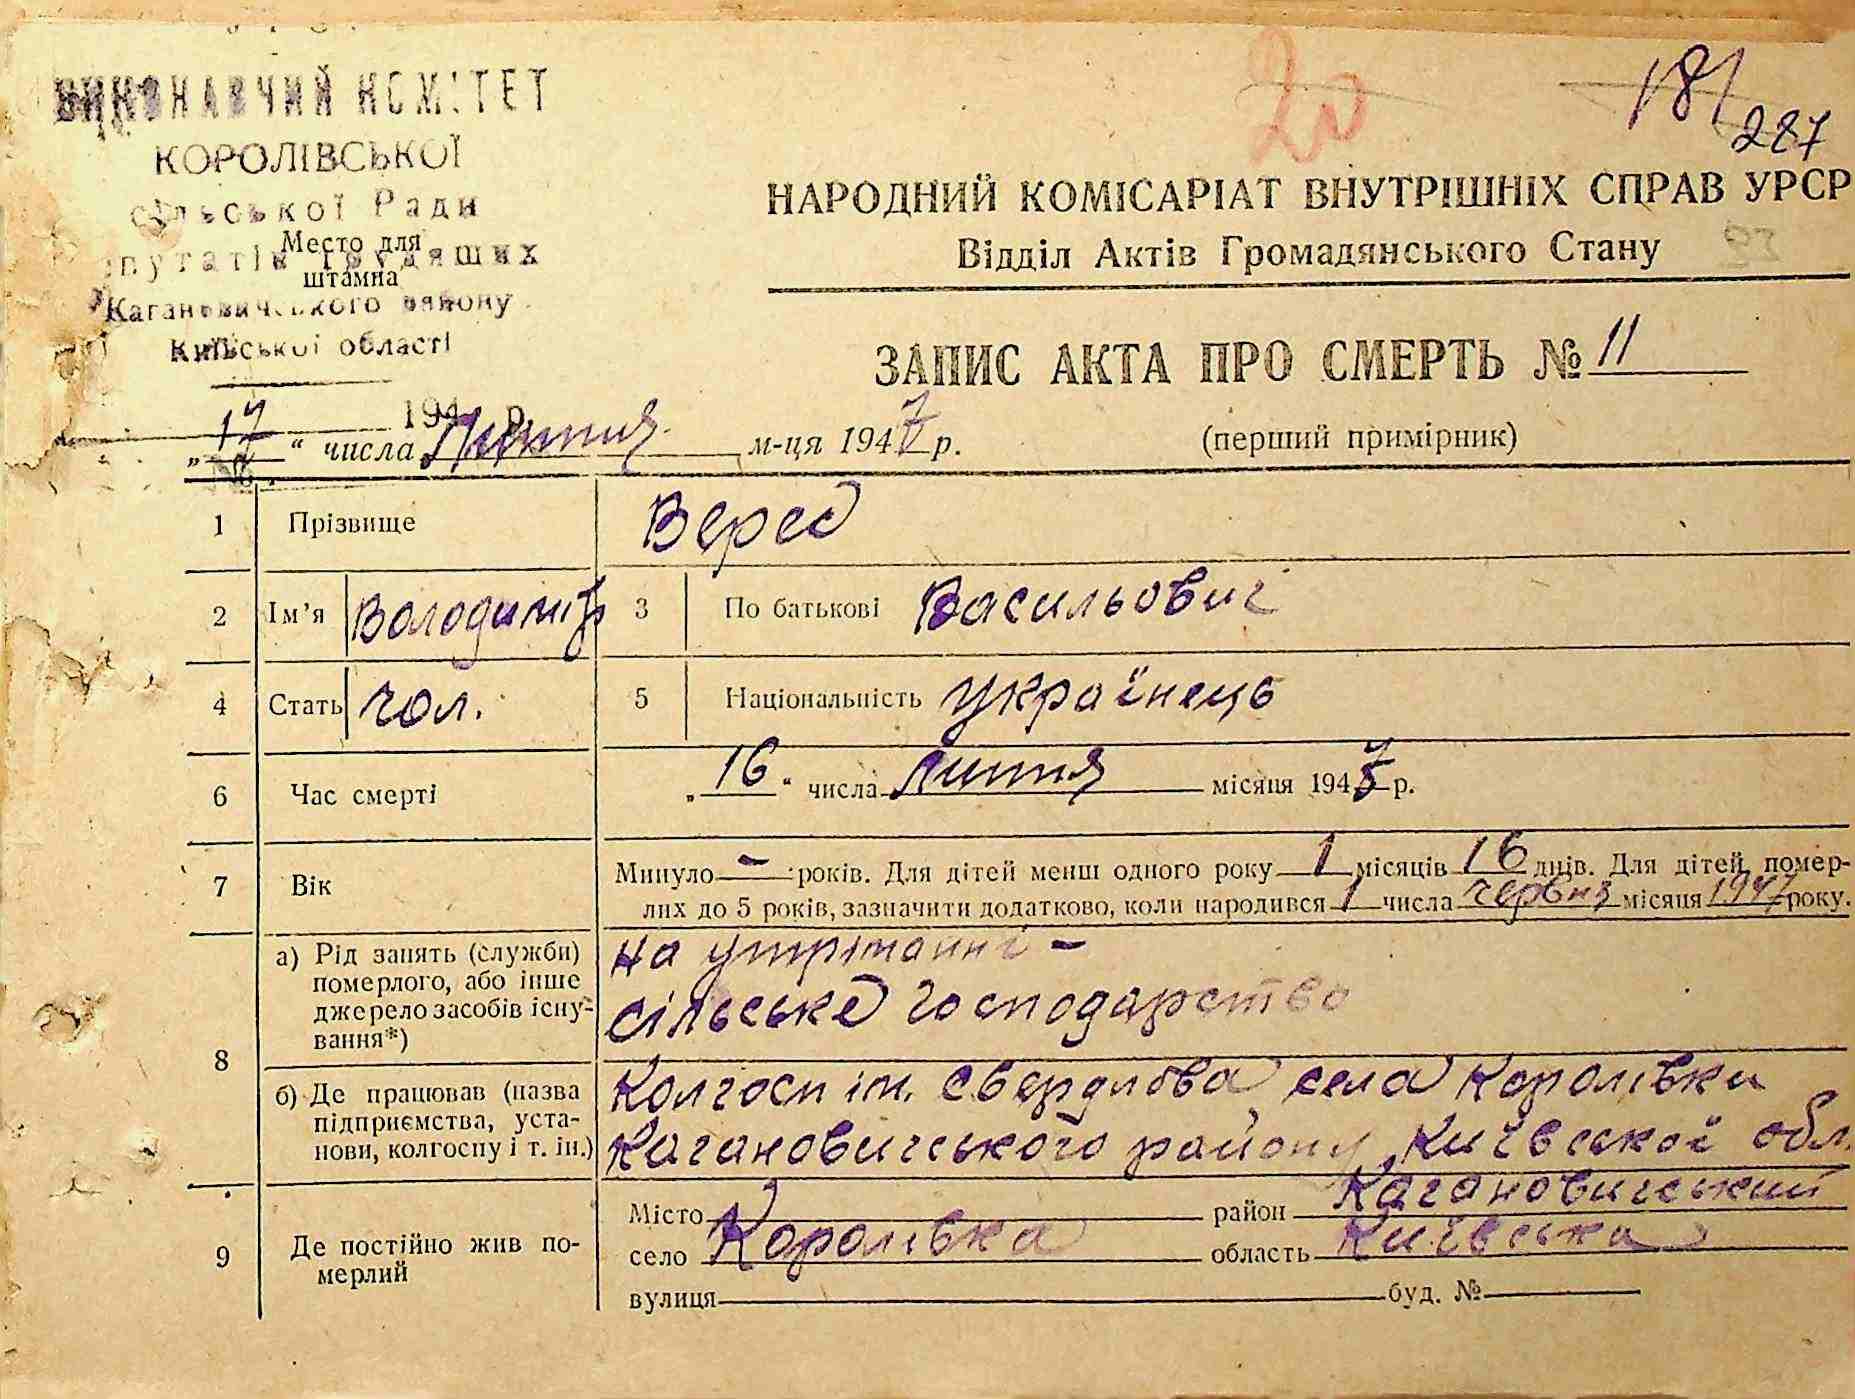 ВИКОНАВЧИЙ КОМІТЕТ
КОРОЛІВСЬКОЇ
сільської Ради
путатів трудящих
Место для
штампа
Кагановичського району
Київської області
194 р.
20
181
287
НАРОДНИЙ КОМІСАРІАТ ВНУТРІШНІХ СПРАВ УРСР
Відділ Актів Громадянського Стану
ЗАПИС АКТА ПРО СМЕРТЬ № 11
(перший примірник)
„17“ числа Липня м-ця 1947 р.
1 Прізвище Верес
2 Ім'я Володимир 3 По батькові Васильович
4 Стать чол. 5 Національність українець
6 Час смерті „16“ числа липня місяця 1947 р.
7 Вік Минуло – років. Для дітей менш одного року 1 місяців 16 днів. Для дітей, помер-
лих до 5 років, зазначити додатково, коли народився 1 числа червня місяця 1947 року.
8 а) Рід занять (служби)
померлого, або інше
джерело засобів існу-
вання*)
на утріманні –
сільське господарство
б) Де працював (назва
підприємства, уста-
нови, колгоспу і т. ін.)
Колгосп ім. Свердлова села Королівки
Кагановичського району Київської обл.
9 Де постійно жив по-
мерлий
Місто район Кагановичський
село Королівка область Київська
вулиця буд. №